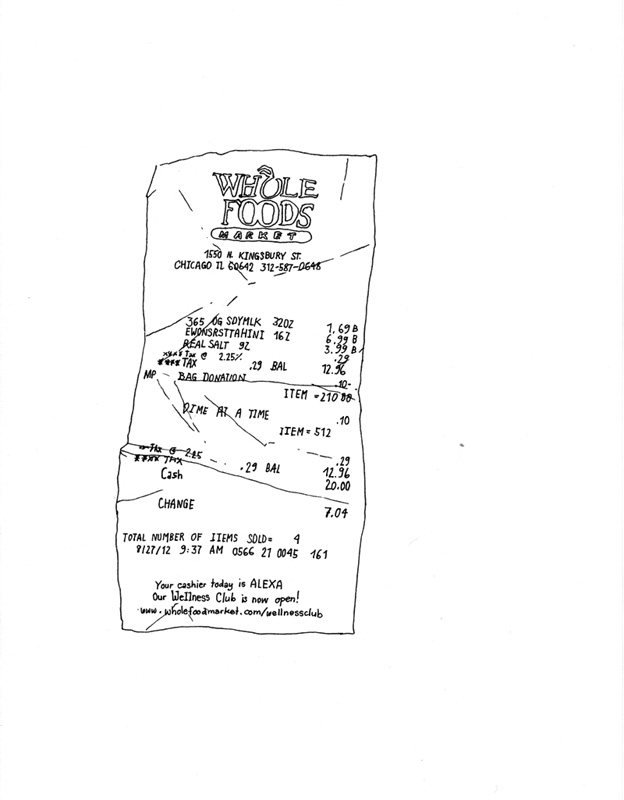 WHOLE
FOODS
MARKET
1550 N. KINGSBURY ST.
CHICAGO IL 60642 312-587-0648
365 OG SOYMLK 32OZ 1.69 B
EWDNSRSTTAHINI 16Z 6.99 B
REAL SALT 9Z 3.99 B
**** Tax @ 2.25% .29
**** TAX .29 BAL 12.96
MP BAG DONATION .10-
ITEM =210 00
DIME AT A TIME .10
ITEM= 512
Tax @ 2.25 .29
**** TAX .29 BAL 12.96
Cash 20.00
CHANGE 7.04
TOTAL NUMBER OF ITEMS SOLD= 4
8/27/12 9:37 AM 0566 27 0045 161
Your cashier today is ALEXA
Our Wellness Club is now open!
www.wholefoodmarket.com/wellnessclub